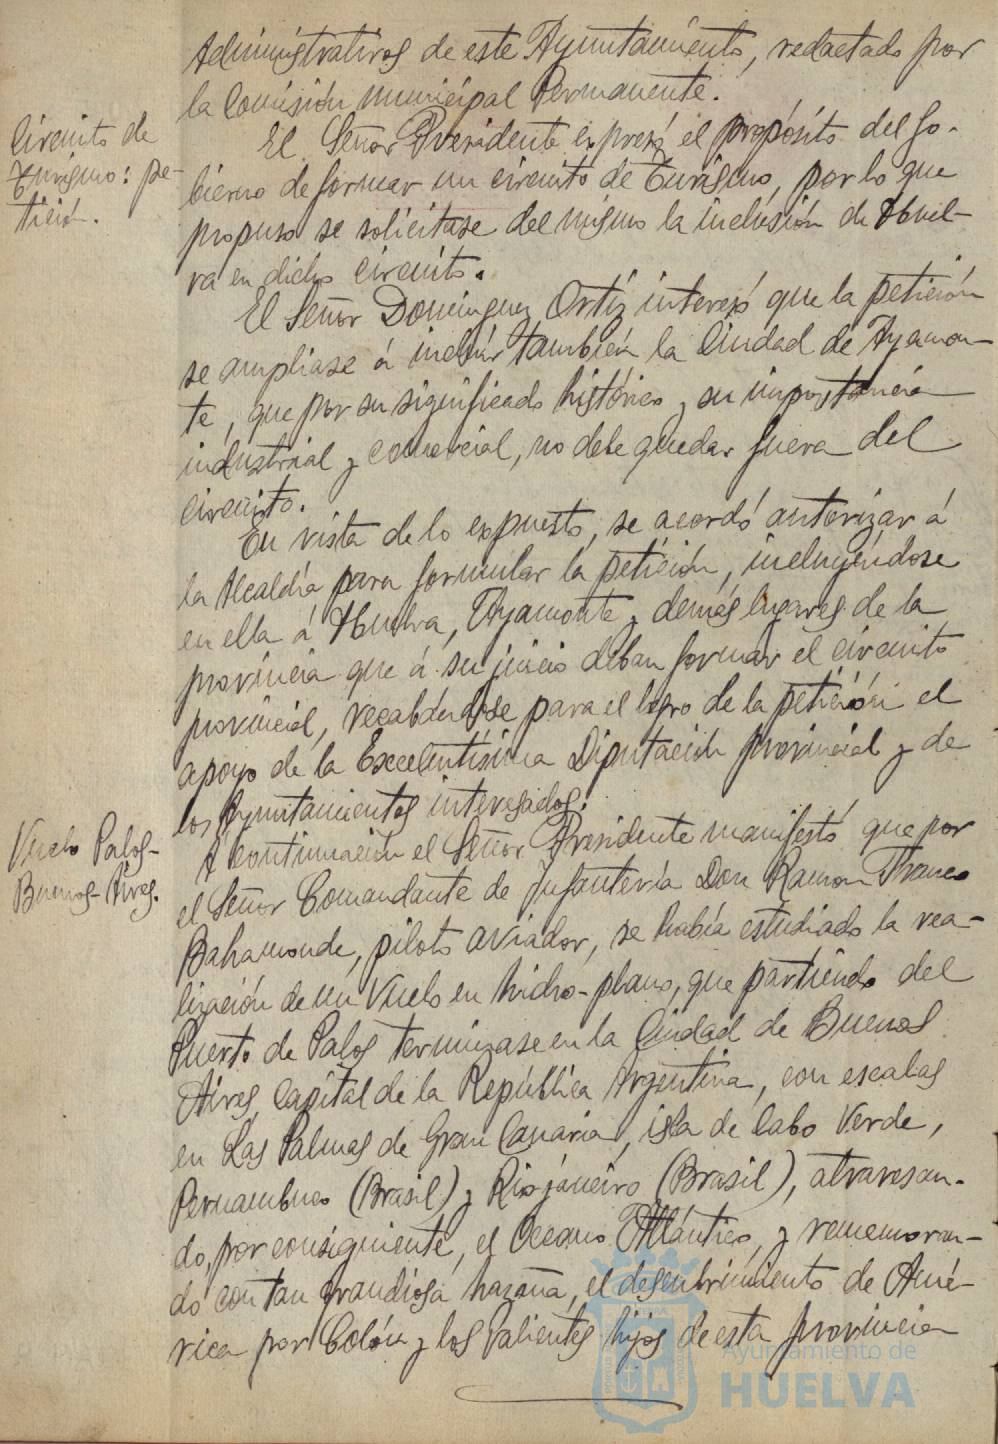 Administrativos de este Ayuntamiento, redactado por
la Comisión Municipal Permanente.
Circuito de
Turismo: pe-
tición.
El Señor Presidente expresó el propósito del Go-
bierno de formar un circuito de Turismo, por lo que
propuso se solicitase del mismo la inclusión de Huel-
va en dicho circuito.
El Señor Domínguez Ortiz interesó que la petición
se ampliase á incluir también la Ciudad de Ayamon-
te, que por su significado histórico y su importancia
industrial y comercial, no debe quedar fuera del
circuito.
En vista de lo expuesto, se acordó autorizar á
la Alcaldía para formular la petición, incluyéndose
en ella á Huelva, Ayamonte y demás lugares de la
provincia que á su juicio deban formar el circuito
provincial, recabándose para el logro de la petición el
apoyo de la Excelentísima Diputación provincial y de
los Ayuntamientos interesados.
Vuelo Palos-
Buenos-Aires.
A continuación el Señor Presidente manifestó que por
el Señor Comandante de Infantería Don Ramon Franco
Bahamonde, piloto aviador, se había estudiado la rea-
lización de un vuelo en hidro-plano, que partiendo del
Puerto de Palos terminase en la Ciudad de Buenos
Aires, Capital de la República Argentina, con escalas
en Las Palmas de Gran Canaria, isla de Cabo Verde,
Pernambuco (Brasil) y Rio janeiro (Brasil), atravesan-
do, por consiguiente, el Oceano Atlántico, y rememoran-
do con tan grandiosa hazaña, el descubrimiento de Amé-
rica por Colón y los valientes hijos de esta provincia
Ayuntamiento de
HUELVA